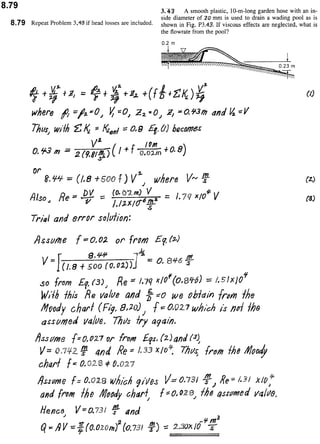 8.79
8.79 Repeat Problem 3.43 if head losses are included.
3.43 A smooth plastic, 10-m-long garden hose with an in-
side diameter of 20 mm is used to drain a wading pool as is
shown in Fig. P3.43. If viscous effects are neglected, what is
the flowrate from the pool?
0.2 m
0.23 m
p₁/γ + V₁²/2g + z₁ = p₂/γ + V₂²/2g + z₂ + (f ℓ/D + ΣK_L) V²/2g (1)
where p₁ = p₂ = 0, V₁ = 0, z₂ = 0, z₁ = 0.43m and V₂ = V
Thus, with ΣK_L = K_Lent = 0.8 Eq. (1) becomes
0.43 m = V²/2(9.81 m/s²) (1 + f 10m/0.02m + 0.8)
or
8.44 = (1.8 + 500 f) V², where V ~ m/s (2)
Also, Re = DV/ν = (0.02m) V/1.12x10⁻⁶ m²/s = 1.79 x10⁴ V (3)
Trial and error solution:
Assume f = 0.02 or from Eq. (2)
V = [8.44/(1.8 + 500 (0.02))]^½ = 0.846 m/s
so from Eq. (3), Re = 1.79 x10⁴ (0.846) = 1.51x10⁴
With this Re value and ε/D = 0 we obtain from the
Moody chart (Fig. 8.20), f = 0.027 which is not the
assumed value. Thus try again.
Assume f = 0.027 or from Eqs. (2) and (3),
V = 0.742 m/s and Re = 1.33 x10⁴. Thus, from the Moody
chart f = 0.028 ≠ 0.027
Assume f = 0.028 which gives V = 0.731 m/s, Re = 1.31 x10⁴
and from the Moody chart, f = 0.028, the assumed value.
Hence, V = 0.731 m/s and
Q = AV = π/4 (0.020m)² (0.731 m/s) = 2.30x10⁻⁴ m³/s